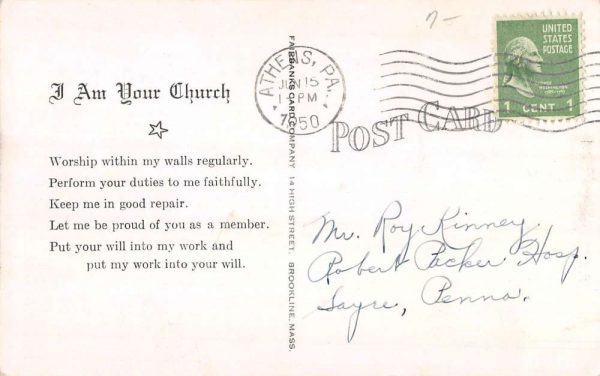 7-
UNITED
STATES
POSTAGE
1 CENT 1
ATHENS, PA.
JUN 15
PM
1950
POST CARD
I Am Your Church
Worship within my walls regularly.
Perform your duties to me faithfully.
Keep me in good repair.
Let me be proud of you as a member.
Put your will into my work and
put my work into your will.
FAIRBANKS CARD COMPANY 14 HIGH STREET, BROOKLINE, MASS.
Mr. Roy Kinney
Robert Packer Hosp.
Sayre, Penna.